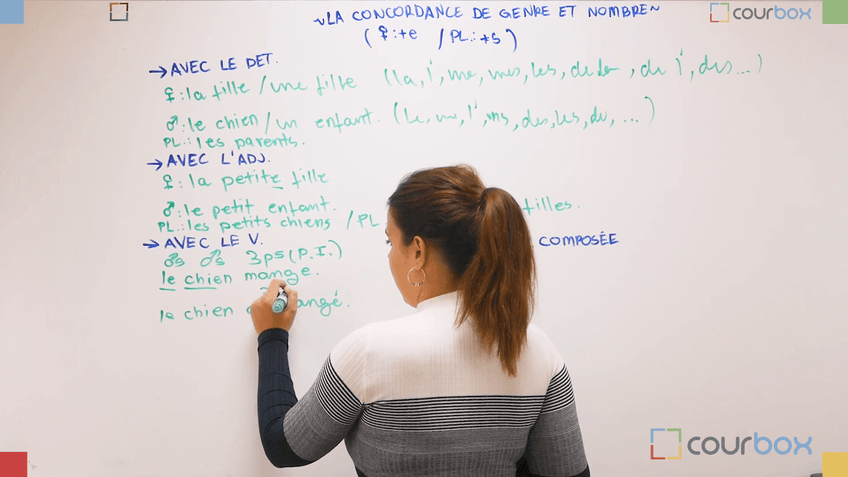 courbox
~LA CONCORDANCE DE GENRE ET NOMBRE~
(♀:+e / PL.:+s)
→AVEC LE DET.
♀:la fille/une fille (la, l', ma, mes, les, de la, de l', des...)
♂:le chien/un enfant. (le, un, l', des, les, du, ...)
PL.:les parents.
→AVEC L'ADJ.
♀: la petite fille
♂:le petit enfant. filles.
PL.:les petits chiens / PL
→ AVEC LE V. COMPOSÉE
3ps (P.I.)
le chien mange.
le chien angé.
courbox